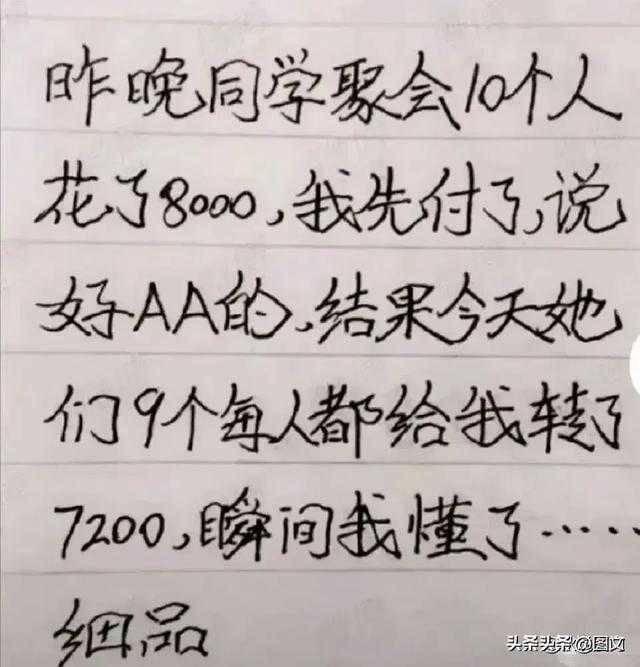 昨晚同学聚会10个人
花了8000,我先付了,说
好AA的,结果今天她
们9个每人都给我转了
7200,瞬间我懂了……
细品
头条 @图文